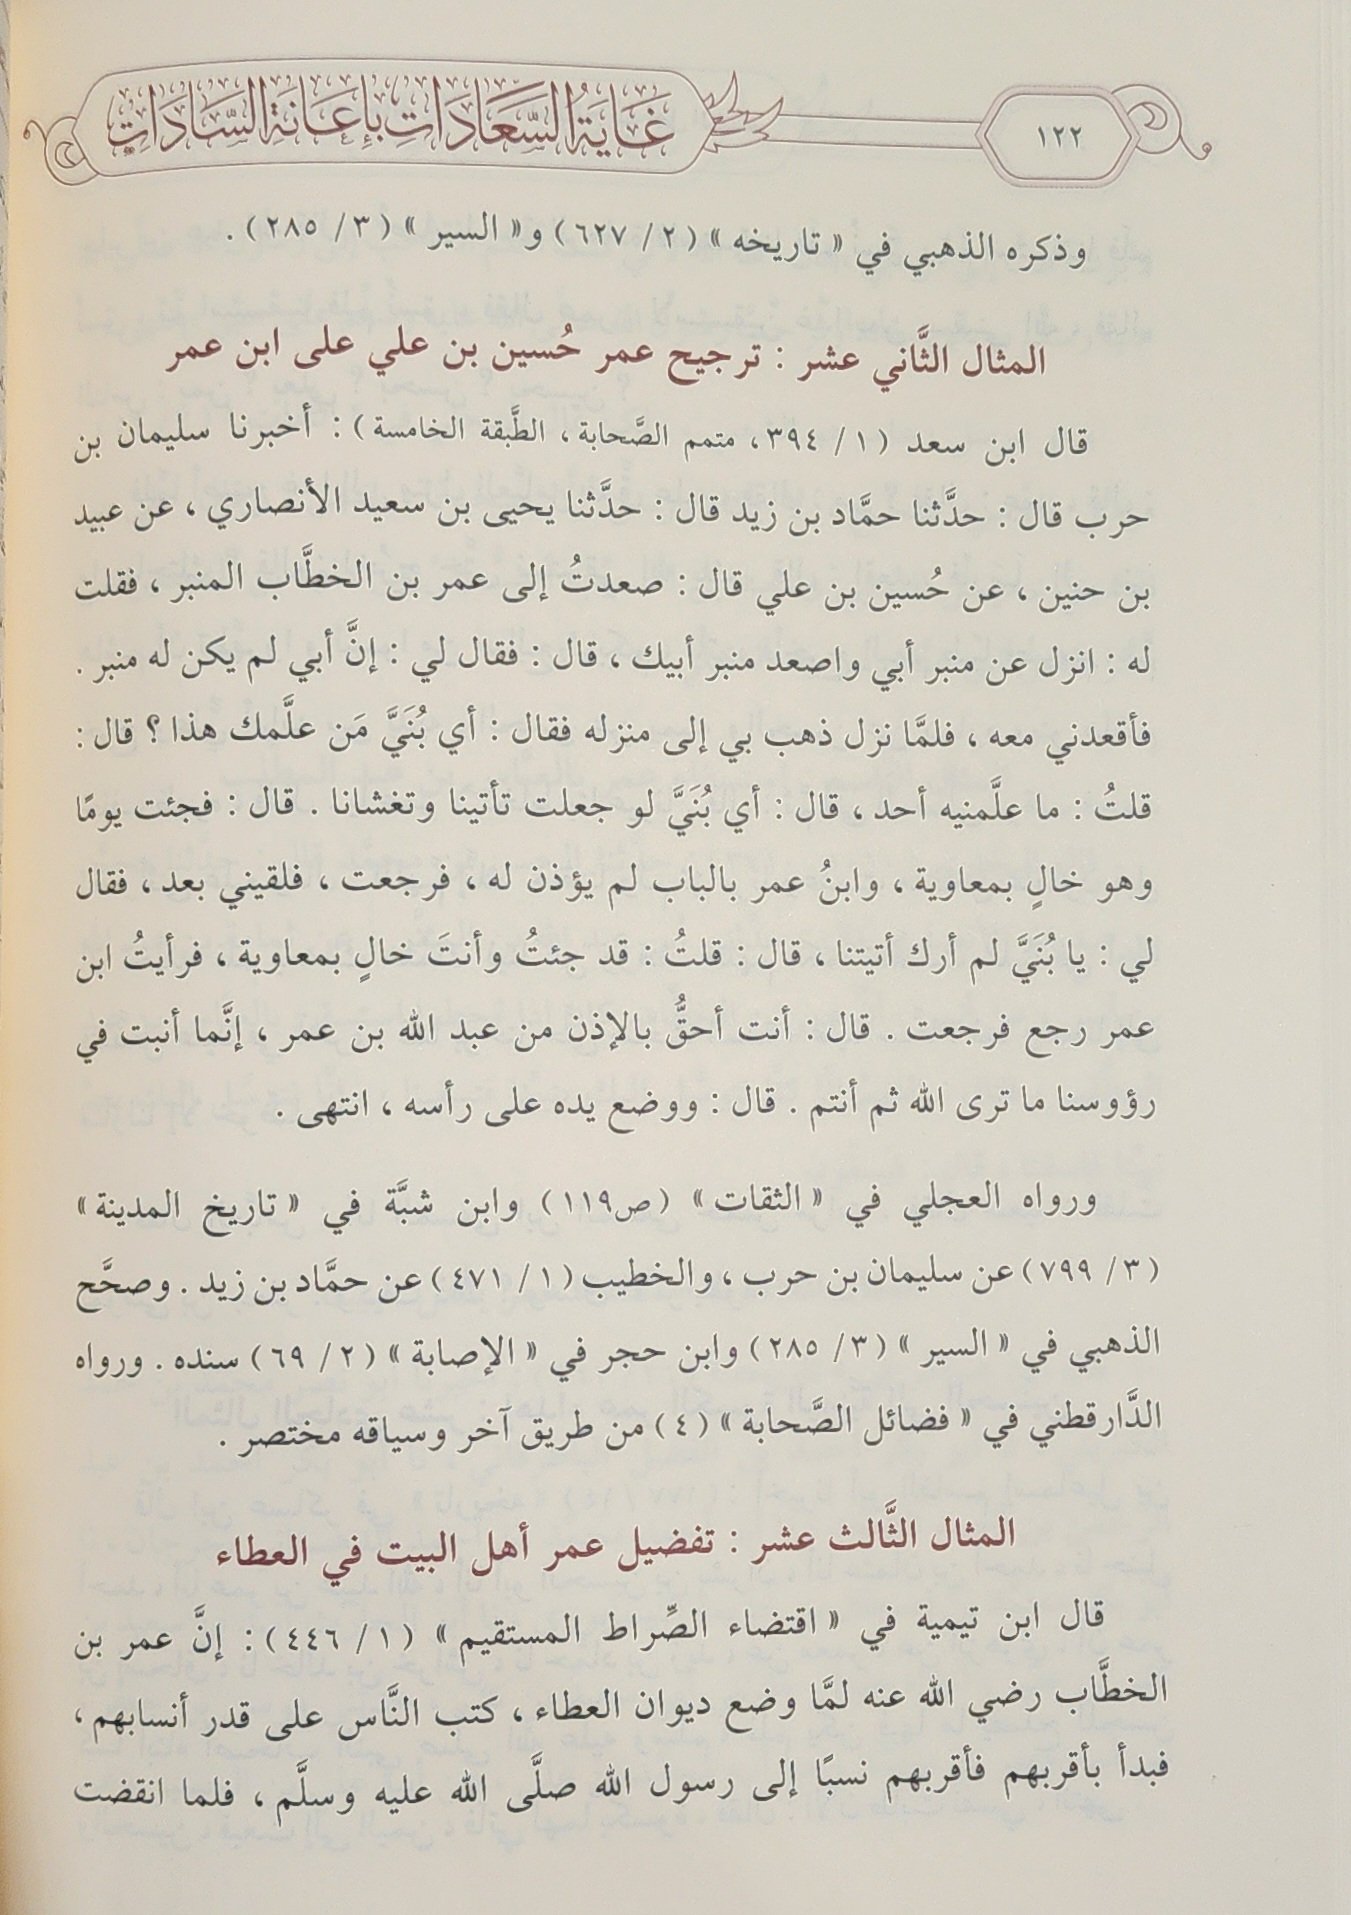 غَايَةُ السَّعَادَاتِ بِإِعَانَةِ السَّادَاتِ
١٢٢
وذكره الذهبي في « تاريخه » ( ٢ / ٦٢٧ ) و« السير » ( ٣ / ٢٨٥ ) .
المثال الثَّاني عشر : ترجيح عمر حُسين بن علي على ابن عمر
قال ابن سعد ( ١ / ٣٩٤ ، متمم الصَّحابة ، الطَّبقة الخامسة ) : أخبرنا سليمان بن
حرب قال : حدَّثنا حمَّاد بن زيد قال : حدَّثنا يحيى بن سعيد الأنصاري ، عن عبيد
بن حنين ، عن حُسين بن علي قال : صعدتُ إلى عمر بن الخطَّاب المنبر ، فقلت
له : انزل عن منبر أبي واصعد منبر أبيك ، قال : فقال لي : إنَّ أبي لم يكن له منبر .
فأقعدني معه ، فلمَّا نزل ذهب بي إلى منزله فقال : أي بُنَيَّ مَن علَّمك هذا ؟ قال :
قلتُ : ما علَّمنيه أحد ، قال : أي بُنَيَّ لو جعلت تأتينا وتغشانا . قال : فجئت يومًا
وهو خالٍ بمعاوية ، وابنُ عمر بالباب لم يؤذن له ، فرجعت ، فلقيني بعد ، فقال
لي : يا بُنَيَّ لم أرك أتيتنا ، قال : قلتُ : قد جئتُ وأنتَ خالٍ بمعاوية ، فرأيتُ ابن
عمر رجع فرجعت . قال : أنت أحقُّ بالإذن من عبد الله بن عمر ، إنَّما أنبت في
رؤوسنا ما ترى الله ثم أنتم . قال : ووضع يده على رأسه ، انتهى .
ورواه العجلي في « الثقات » ( ص١١٩ ) وابن شبَّة في « تاريخ المدينة »
( ٣ / ٧٩٩ ) عن سليمان بن حرب ، والخطيب ( ١ / ٤٧١ ) عن حمَّاد بن زيد . وصحَّح
الذهبي في « السير » ( ٣ / ٢٨٥ ) وابن حجر في « الإصابة » ( ٢ / ٦٩ ) سنده . ورواه
الدَّارقطني في « فضائل الصَّحابة » ( ٤ ) من طريق آخر وسياقه مختصر .
المثال الثَّالث عشر : تفضيل عمر أهل البيت في العطاء
قال ابن تيمية في « اقتضاء الصِّراط المستقيم » ( ١ / ٤٤٦ ) : إنَّ عمر بن
الخطَّاب رضي الله عنه لمَّا وضع ديوان العطاء ، كتب النَّاس على قدر أنسابهم ،
فبدأ بأقربهم فأقربهم نسبًا إلى رسول الله صلَّى الله عليه وسلَّم ، فلما انقضت